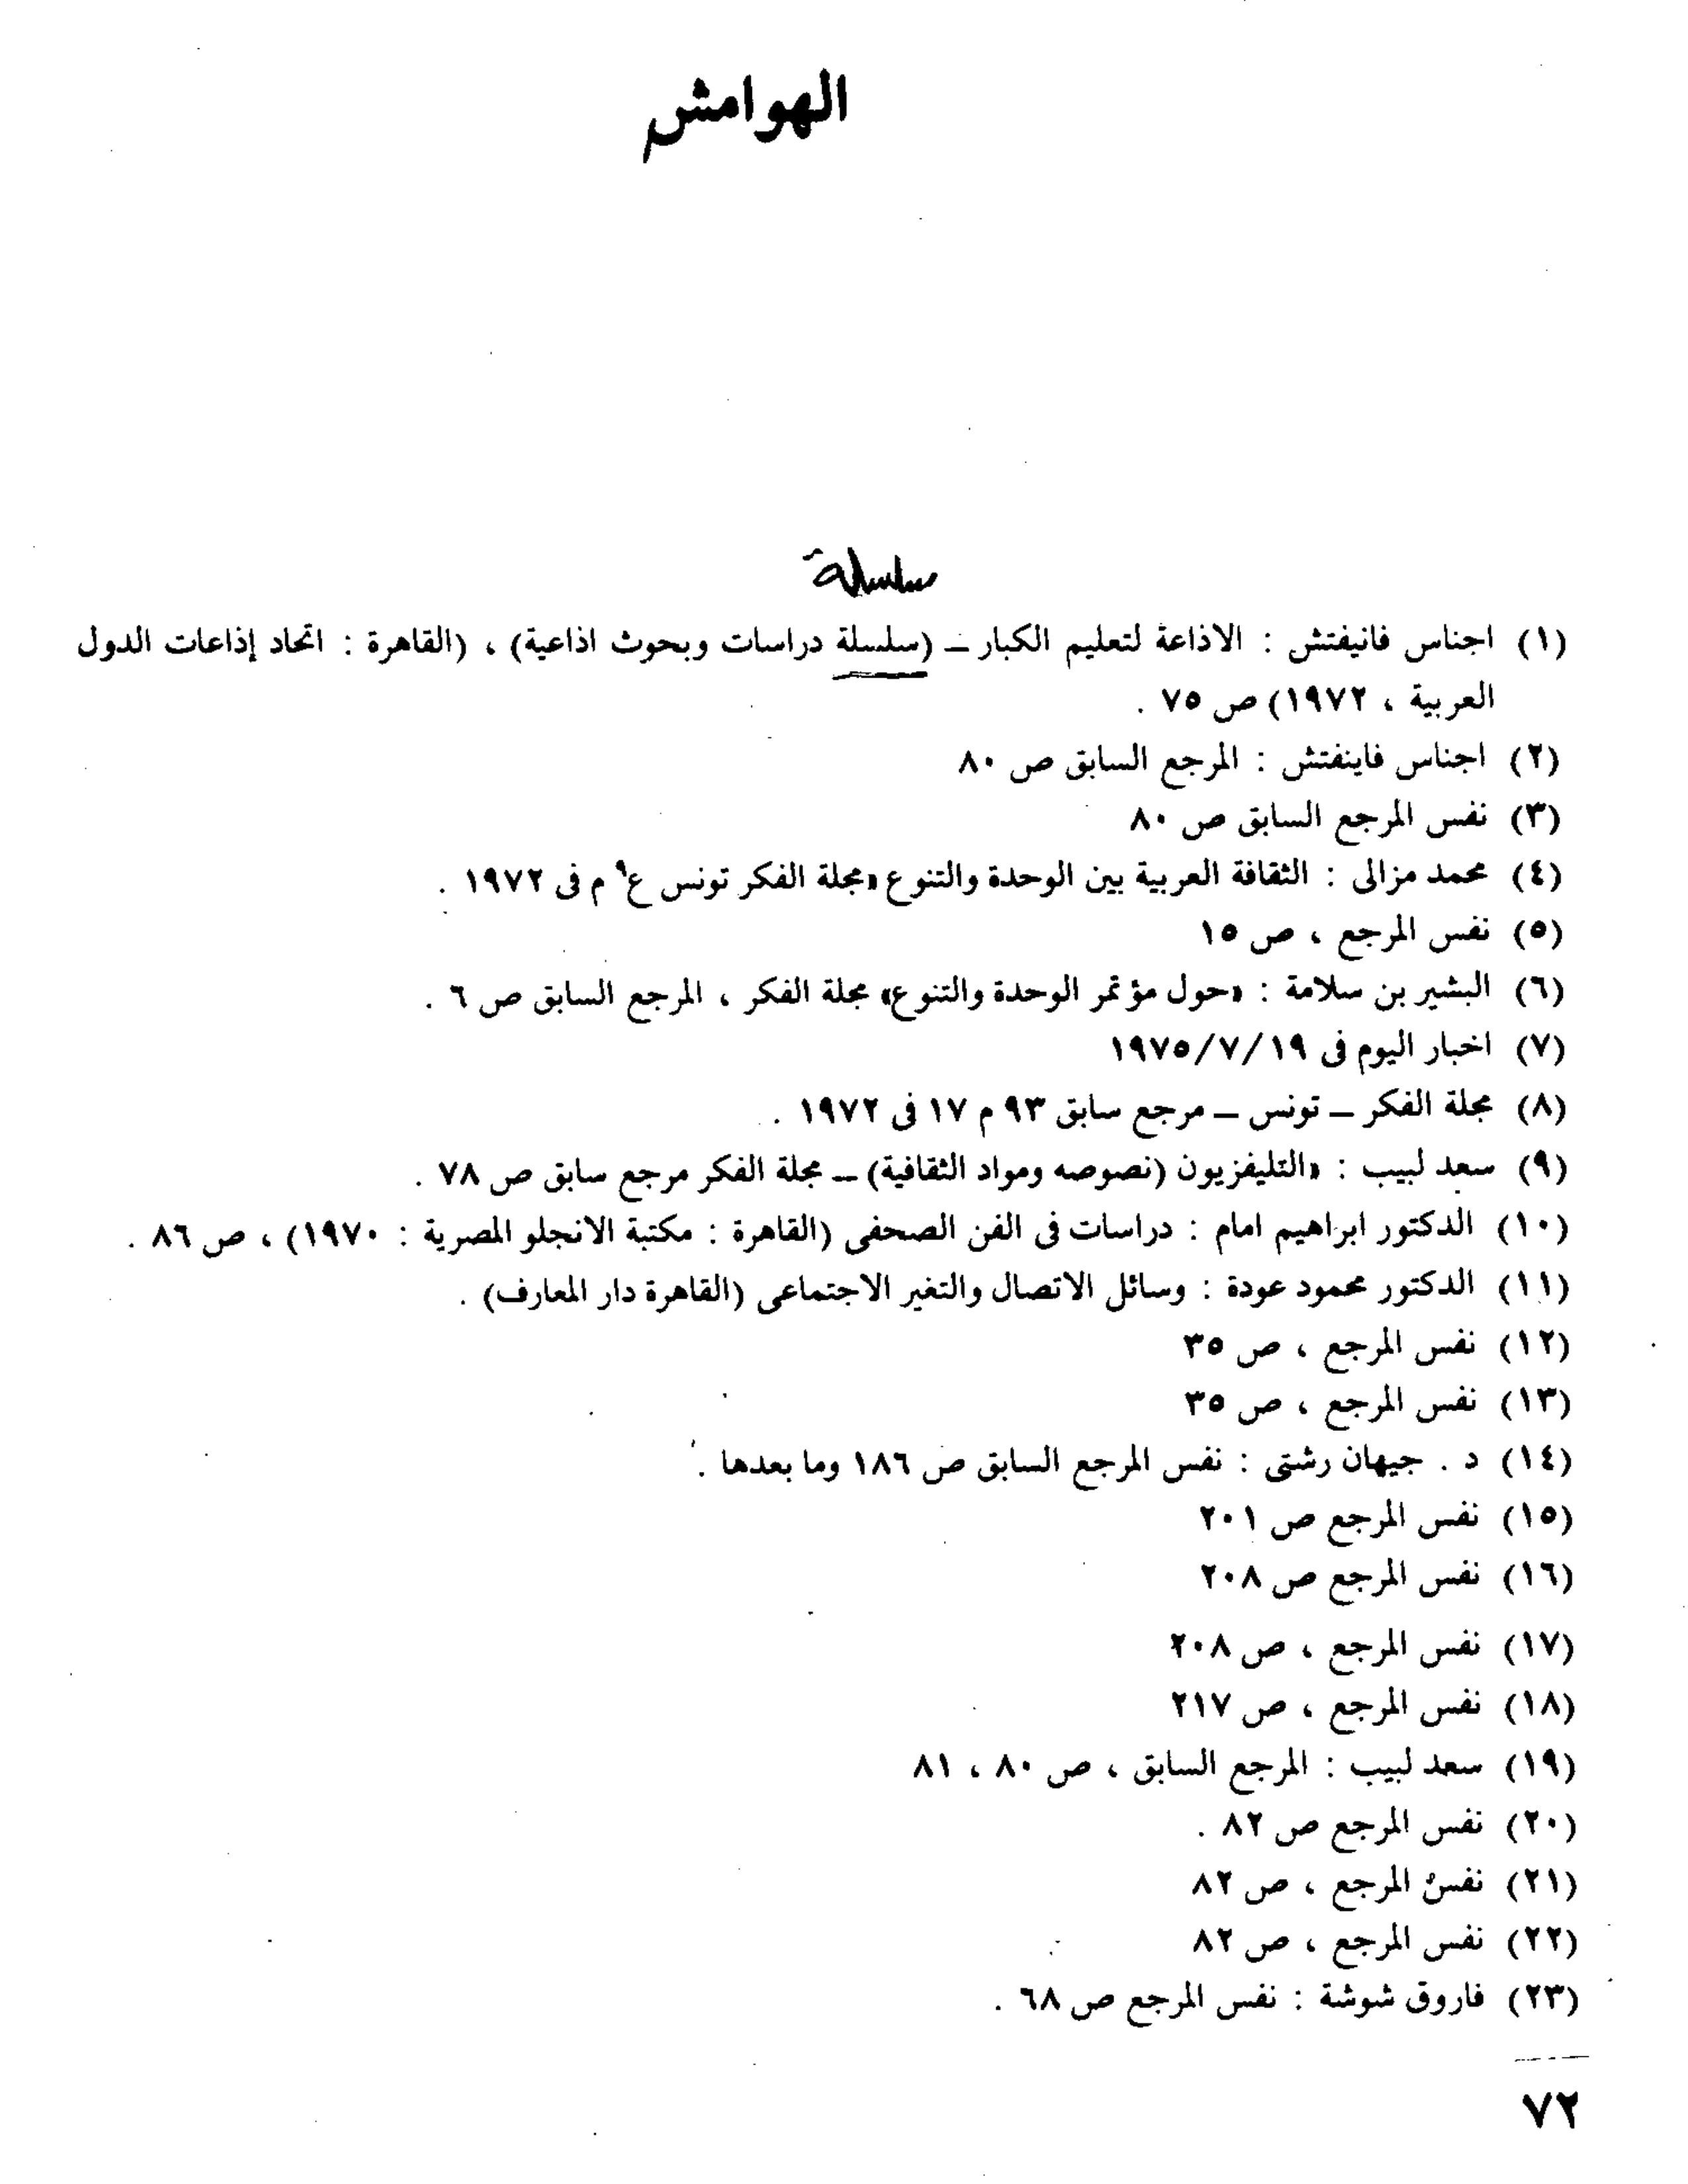 الهوامش
سلسلة
(١) اجناس فانيفتش : الاذاعة لتعليم الكبار ــ (سلسلة دراسات وبحوث اذاعية) ، (القاهرة : اتحاد إذاعات الدول
العربية ، ١٩٧٢) ص ٧٥ .
(٢) اجناس فاينفتش : المرجع السابق ص ٨٠
(٣) نفس المرجع السابق ص ٨٠
(٤) محمد مزالى : الثقافة العربية بين الوحدة والتنوع «مجلة الفكر تونس ع٩ م فى ١٩٧٢ .
(٥) نفس المرجع ، ص ١٥
(٦) البشير بن سلامة : «حول مؤتمر الوحدة والتنوع» مجلة الفكر ، المرجع السابق ص ٦ .
(٧) اخبار اليوم فى ١٩/٧/١٩٧٥
(٨) مجلة الفكر ــ تونس ــ مرجع سابق ٩٣ م ١٧ فى ١٩٧٢ .
(٩) سعد لبيب : «التليفزيون (نصوصه ومواد الثقافية) ــ مجلة الفكر مرجع سابق ص ٧٨ .
(١٠) الدكتور ابراهيم امام : دراسات فى الفن الصحفى (القاهرة : مكتبة الانجلو المصرية : ١٩٧٠) ، ص ٨٦ .
(١١) الدكتور محمود عودة : وسائل الاتصال والتغير الاجتماعى (القاهرة دار المعارف) .
(١٢) نفس المرجع ، ص ٣٥
(١٣) نفس المرجع ، ص ٣٥
(١٤) د . جيهان رشتى : نفس المرجع السابق ص ١٨٦ وما بعدها .
(١٥) نفس المرجع ص ٢٠١
(١٦) نفس المرجع ص ٢٠٨
(١٧) نفس المرجع ، ص ٢٠٨
(١٨) نفس المرجع ، ص ٢١٧
(١٩) سعد لبيب : المرجع السابق ، ص ٨٠ ، ٨١
(٢٠) نفس المرجع ص ٨٢ .
(٢١) نفس المرجع ، ص ٨٢
(٢٢) نفس المرجع ، ص ٨٢
(٢٣) فاروق شوشة : نفس المرجع ص ٦٨ .
٧٢